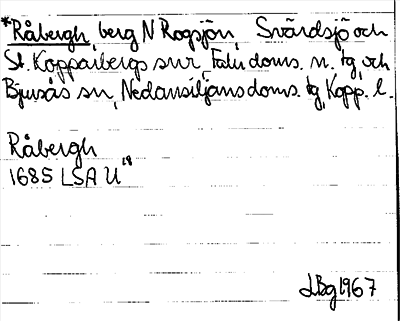 *Råbergh, berg N Rogsjön, Svärdsjö och
St. Kopparbergs snr, Falu doms. n. tg, och
Bjursås sn, Nedansiljans doms. tg, Kopp. l.
Råbergh
1685 LSA U18
LBg 1967